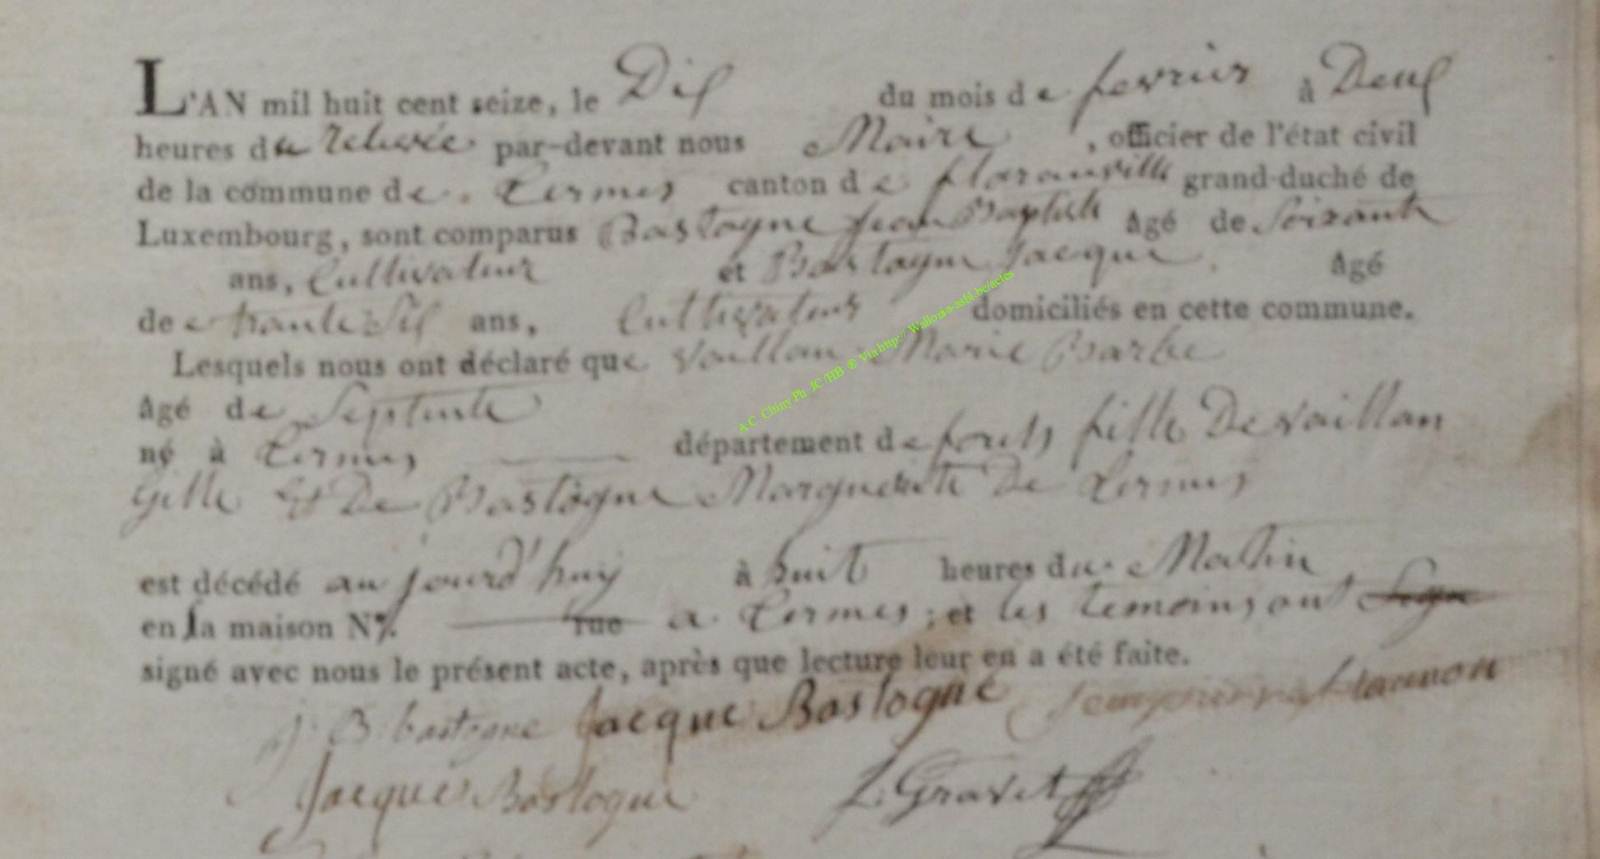 L'AN mil huit cent seize, le Dix du mois de fevrier à Deux
heures de relevée par-devant nous Maire , officier de l'état civil
de la commune de Termes canton de florenville grand-duché de
Luxembourg, sont comparus Bastogne Jean Baptiste âgé de Soixante
ans, Cultivateur et Bastogne Jacque âgé
de trante Six ans, Cultivateur domiciliés en cette commune.
Lesquels nous ont déclaré que Vaillan Marie Barbe
âgé de Septente
né à Termes département de forêts fille De vaillan
Gille Et De Bastogne Marguerite De Termes
est décédé au jourd'huy à huit heures du Matin
en la maison N°. rue a Termes ; et les temoins ont Signe
signé avec nous le présent acte, après que lecture leur en a été faite.
j. B. bastogne Jacque Bastogne
Jacques Bastogne L. Gravet
A.C. Chiny Ph. JC/HB ® Via http:// Wallonia-asbl.be/actes